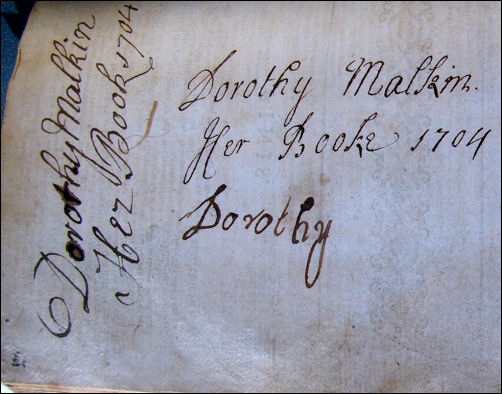 Dorothy Malkin
Her Book 1704
Dorothy Malkin.
Her Booke 1704
Dorothy